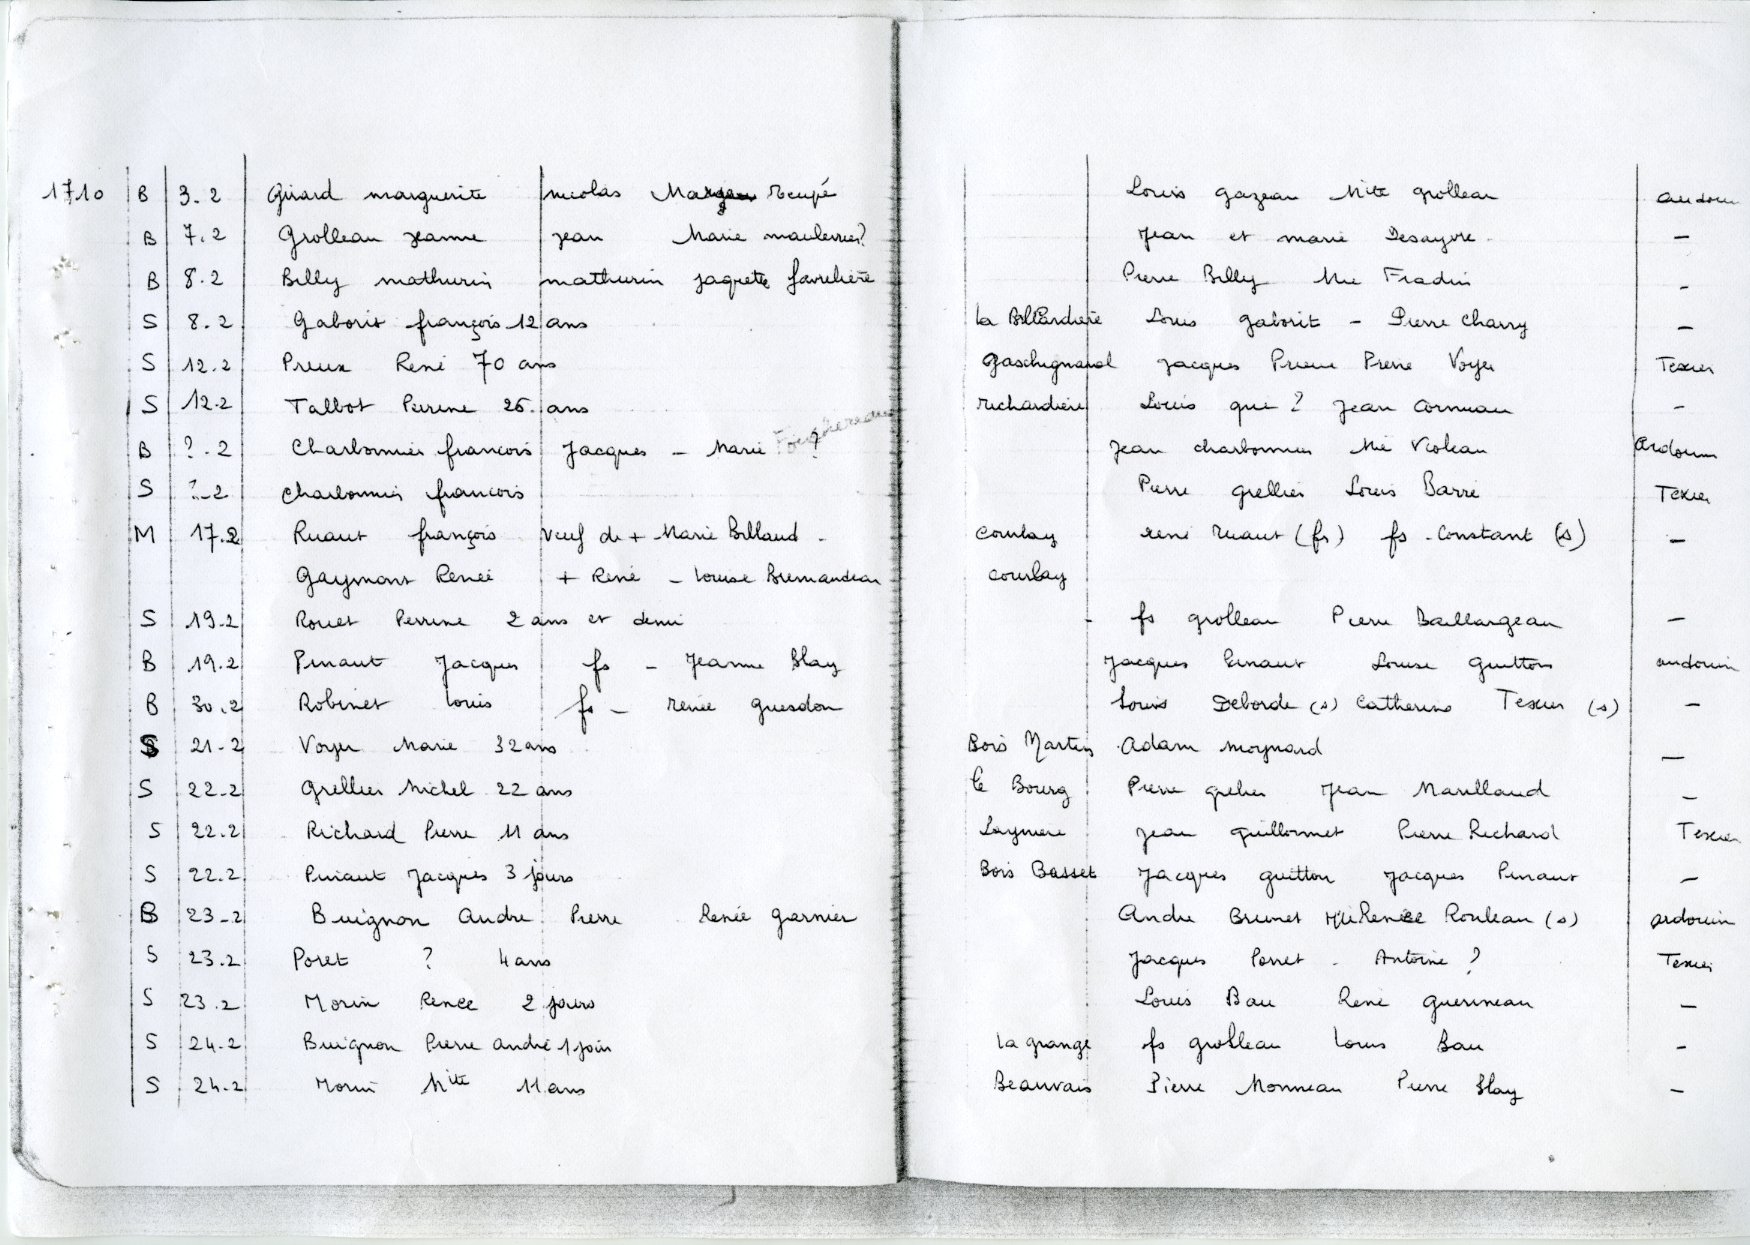 1710 B 3.2 Girard marguerite nicolas Marguerite Recupé Louis gazeau Mite grolleau audouin
B 7.2 Grolleau Jeanne Jean Marie maulevrier? Jean et marie Desayvre - —
B 8.2 Billy mathurin mathurin Jaquette favreliere Pierre Billy Mie Fradin -
S 8.2 Gaborit françois 12 ans la Billardiere Louis gaborit - Pierre Charry —
S 12.2 Preux René 70 ans gaschignard Jacques Prieur Pierre Voyer Texier
S 12.2 Talbot Perrine 26 ans richardiere Louis qui ? Jean Cornuau -
B ?.2 Charbonnier francois Jacques - Marie ? Jean charbonnier Mie Violeau Ardouin
S ?-2 Charbonnier francois Pierre grellier Louis Barré Texier
M 17.2 Ruaut françois Veuf de + Marie Billaud - Courlay rené ruaut (fr) fs - Constant (s) —
Gaymont Renée + René - Louise Bremaudeau courlay
S 19.2 Rouet Perrine 2 ans et demi - fs grolleau Pierre Baillargeau —
B 19.2 Pinaut Jacques fs - Jeanne Blay Jacques Pinaut Louise guitton audouin
B 30.2 Robinet Louis fs - renée guesdon Louis Deborde (s) Catherine Texier (s) —
S 21-2 Voyer Marie 32 ans Bois Martin Adam moynard —
S 22.2 Grellier Michel 22 ans le Bourg Pierre grelier Jean Marillaud —
S 22.2 Richard Pierre 11 ans Jean guillonnet Pierre Richard Texier
S 22.2 Pinaut Jacques 3 jours Bois Basset Jacques guitton Jacques Pinaut —
B 23-2 Buignon Andre Pierre Renée garnier Andre Brunet Renée Rouleau (s) ardouin
S 23.2 Poret ? 4 ans Jacques Porret - Antoine ? Texier
S 23.2 Morin Renée 2 jours Louis Bau René guerineau —
S 24.2 Buignon Pierre andré 1 join la grange fs grolleau Louis Bau -
S 24.2 Morin Mite 11 ans Beauvais Pierre Monneau Pierre Blay —